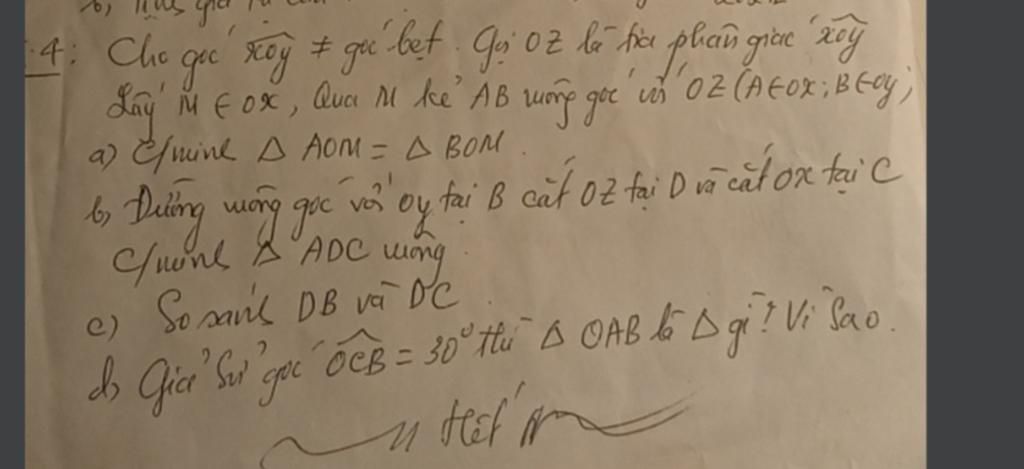 4: Cho góc xOy ≠ góc bẹt. Gọi OZ là tia phân giác xOy
Lấy M ∈ OX, Qua M kẻ AB vuông góc với OZ (A∈OX; B∈Oy)
a) C/minh Δ AOM = Δ BOM.
b) Đường vuông góc với Oy tại B cắt OZ tại D và cắt OX tại C
C/minh Δ ADC vuông.
c) So sánh DB và DC.
d) Giả sử góc OCB = 30° thì Δ OAB là Δ gì? Vì Sao.
Hết